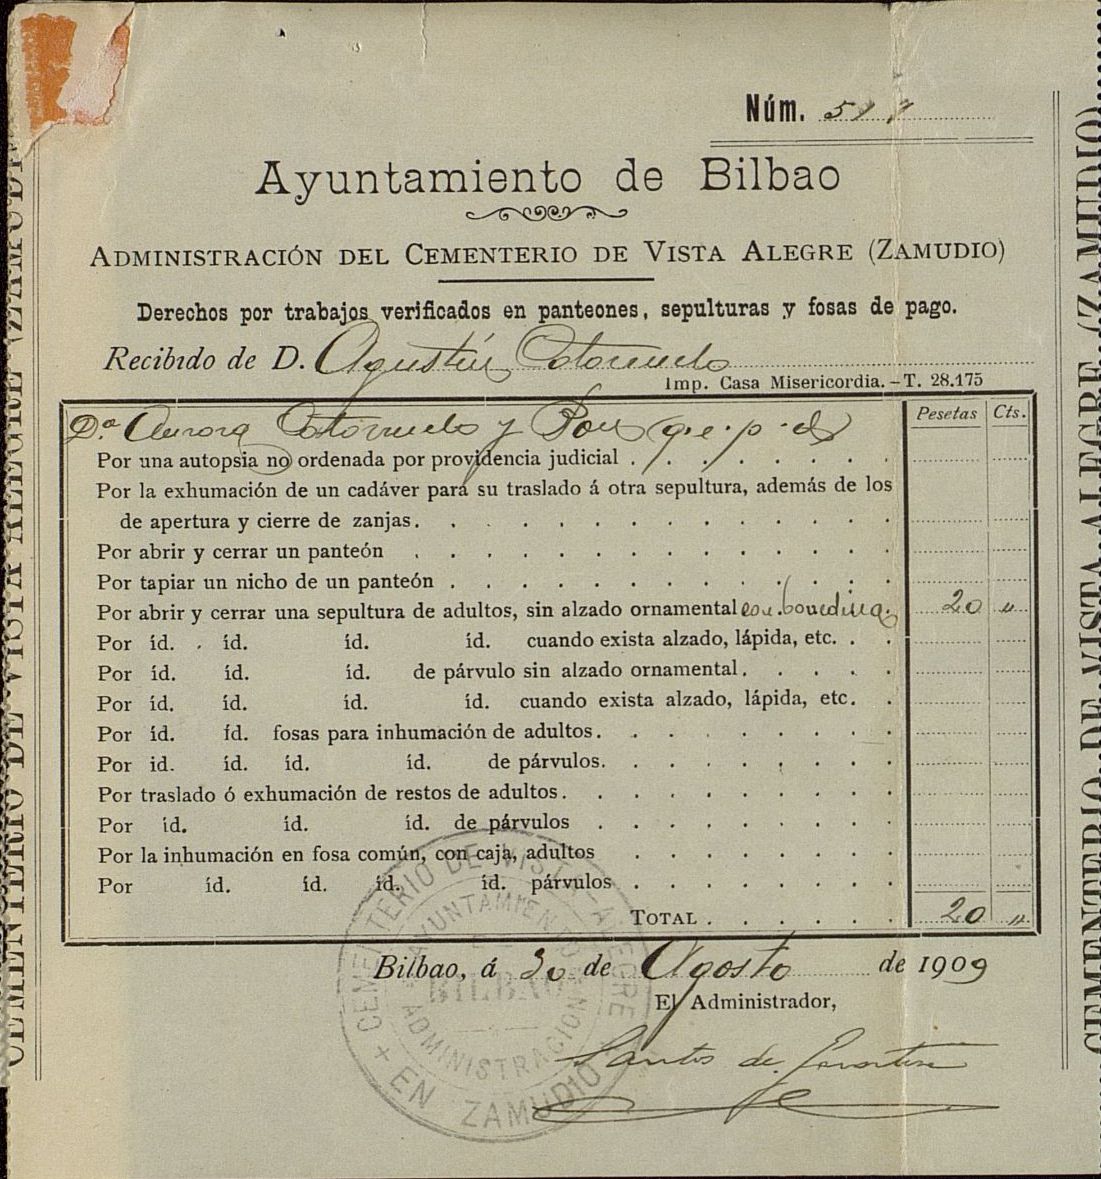 Núm.
Ayuntamiento de Bilbao
ADMINISTRACIÓN DEL CEMENTERIO DE VISTA ALEGRE (ZAMUDIO)
Derechos por trabajos verificados en panteones, sepulturas y fosas de pago.
Recibido de D. Agustín Cotorruelo
Imp. Casa Misericordia. - T. 28.175
Pesetas Cts.
D.ª Aurora Cotorruelo y Pou q.e.p.d
Por una autopsia no ordenada por providencia judicial
Por la exhumación de un cadáver para su traslado á otra sepultura, además de los
de apertura y cierre de zanjas.
Por abrir y cerrar un panteón
Por tapiar un nicho de un panteón
Por abrir y cerrar una sepultura de adultos, sin alzado ornamental con bovedilla 20 „
Por íd. íd. íd. íd. cuando exista alzado, lápida, etc.
Por íd. íd. íd. de párvulo sin alzado ornamental.
Por íd. íd. íd. íd. cuando exista alzado, lápida, etc.
Por íd. íd. fosas para inhumación de adultos.
Por id. íd. íd. íd. de párvulos.
Por traslado ó exhumación de restos de adultos.
Por íd. íd. íd. de párvulos
Por la inhumación en fosa común, con caja, adultos
Por íd. íd. íd. íd. párvulos
TOTAL 20 „
Bilbao, á 30 de Agosto de 1909
El Administrador,
Santos de
CEMENTERIO DE VISTA-ALEGRE
AYUNTAMIENTO DE
BILBAO
ADMINISTRACION
+ EN ZAMUDIO
CEMENTERIO DE VISTA ALEGRE (ZAMUDI
CEMENTERIO DE VISTA ALEGRE (ZAMUDIO)